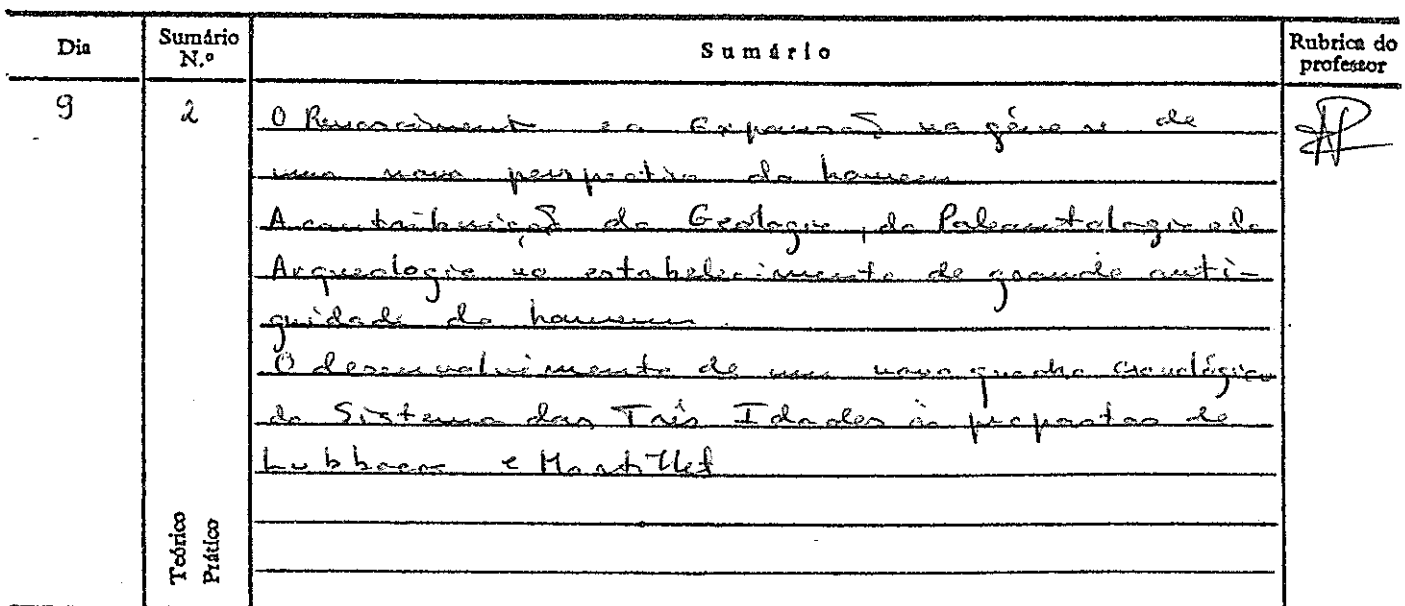 Dia
Sumário N.º
Sumário
Rubrica do professor
9
2
O Renascimento e a Expansão na génese de
uma nova perspectiva do homem
A contribuição da Geologia, da Paleontologia e da
Arqueologia no estabelecimento de grande anti-
guidade do homem.
O desenvolvimento de um novo quadro cronológico
do Sistema das Três Idades às propostas de
Lubbock e Mortillet
Teórico
Prático